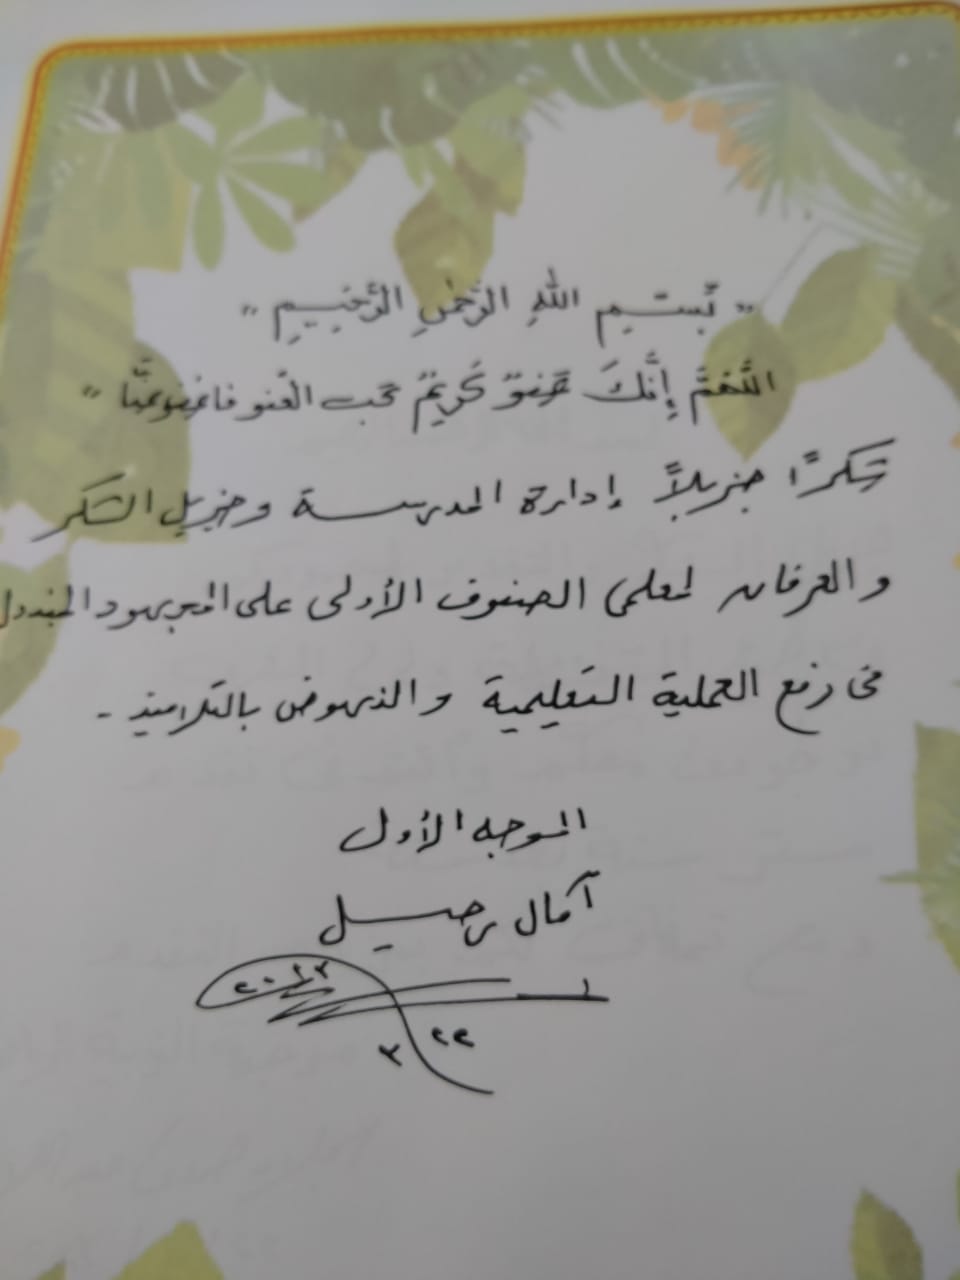 " بِّسْــمِ اللهِ الرَّحْمٰنِ الرَّحِيــمِ "
اللَّهُمَّ إِنَّكَ عَفُوٌّ كَرِيْمٌ تحب العفو فاعفو عنَّا "
شكرًا جزيلاً إدارة المدرسة وجزيل الشكر
والعرفان لمعلمي الصفوف الأولى على المجهود المبذول
في رفع العملية التعليمية والنهوض بالتلاميذ -
الموجه الأول
آمال رحيل
٢٢
٣